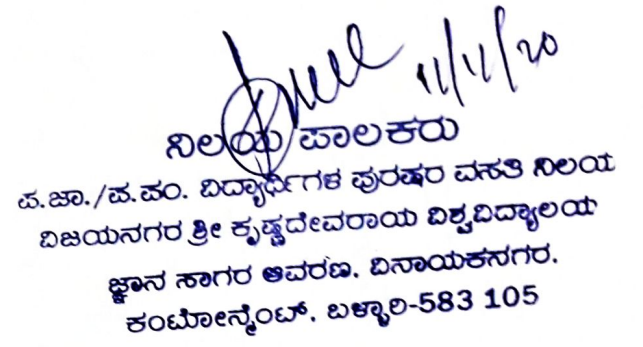 11/11/20
ನಿಲಯ ಪಾಲಕರು
ಪ.ಜಾ./ಪ.ಪಂ. ವಿದ್ಯಾರ್ಥಿಗಳ ಪುರುಷರ ವಸತಿ ನಿಲಯ
ವಿಜಯನಗರ ಶ್ರೀ ಕೃಷ್ಣದೇವರಾಯ ವಿಶ್ವವಿದ್ಯಾಲಯ
ಜ್ಞಾನ ಸಾಗರ ಆವರಣ, ವಿನಾಯಕನಗರ,
ಕಂಟೋನ್ಮೆಂಟ್, ಬಳ್ಳಾರಿ-583 105